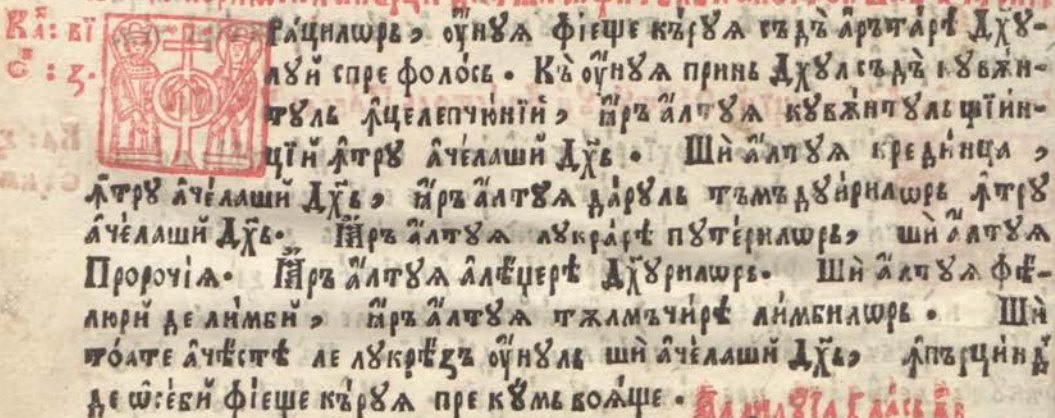 Кап҃: ві
С҃: з҃.
Рацилѡрь, оунꙋѧ фїеще кърꙋѧ съ дъ арътарѣ Дх҃ꙋ-
лꙋй спре фолось. Къ оунꙋѧ принь Дх҃ꙋл съ дъ кꙋвѫн-
тꙋль ꙟцелепчюнїй, ꙗръ алтꙋѧ кꙋвѫнтꙋль щїйн-
цїй ꙟтрꙋ ачелаши Дх҃ь. Ши алтꙋѧ крединца,
ꙟтрꙋ ачелаши Дх҃ь, ꙗръ алтꙋѧ дарꙋль тъмъдꙋирилѡрь ꙟтрꙋ
ачелаши Дх҃ь. Ꙗръ алтꙋѧ лꙋкрарѣ пꙋтерилѡрь, ши алтꙋѧ
Пророчїѧ. Ꙗръ алтꙋѧ алѣџерѣ Дх҃ꙋрилѡрь. Ши алтꙋѧ фѣ-
люри де лимби, ꙗръ алтꙋѧ тѫлмъчирѣ лимбилѡрь. Ши
тоате ачѣстѣ ле лꙋкрѣзъ оунꙋль ши ачелаши Дх҃ь, ꙟпърцинд
де ѡсеби фїеще кърꙋѧ пре кꙋмь воѧще.